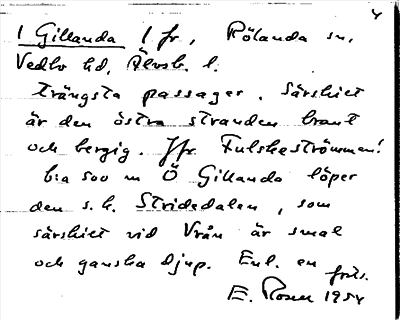 4
1 Gillanda 1 fr, Rölanda sn,
Vedbo hd, Älvsb. l.
trängsta passager. Särskilt
är den östra stranden brant
och bergig. Jfr Fulskeströmmen!
bra 500 m Ö Gillanda löper
den s.k. Stridedalen, som
särskilt vid Vrån är smal
och ganska djup. Enl. en
forts.
E. Rosen 1954